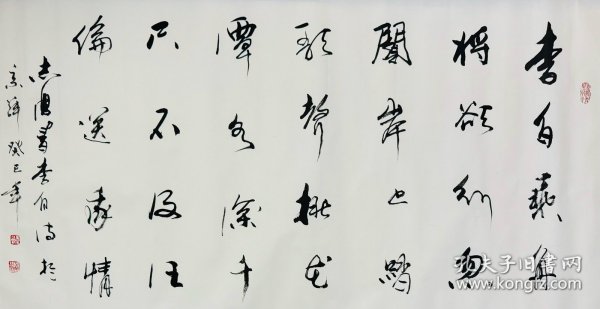 李白乘舟
將欲行忽
聞岸上踏
歌聲桃花
潭水深千
尺不及汪
倫送我情
書李白詩於
京華癸巳年
孔夫子旧书网
www.kongfz.com